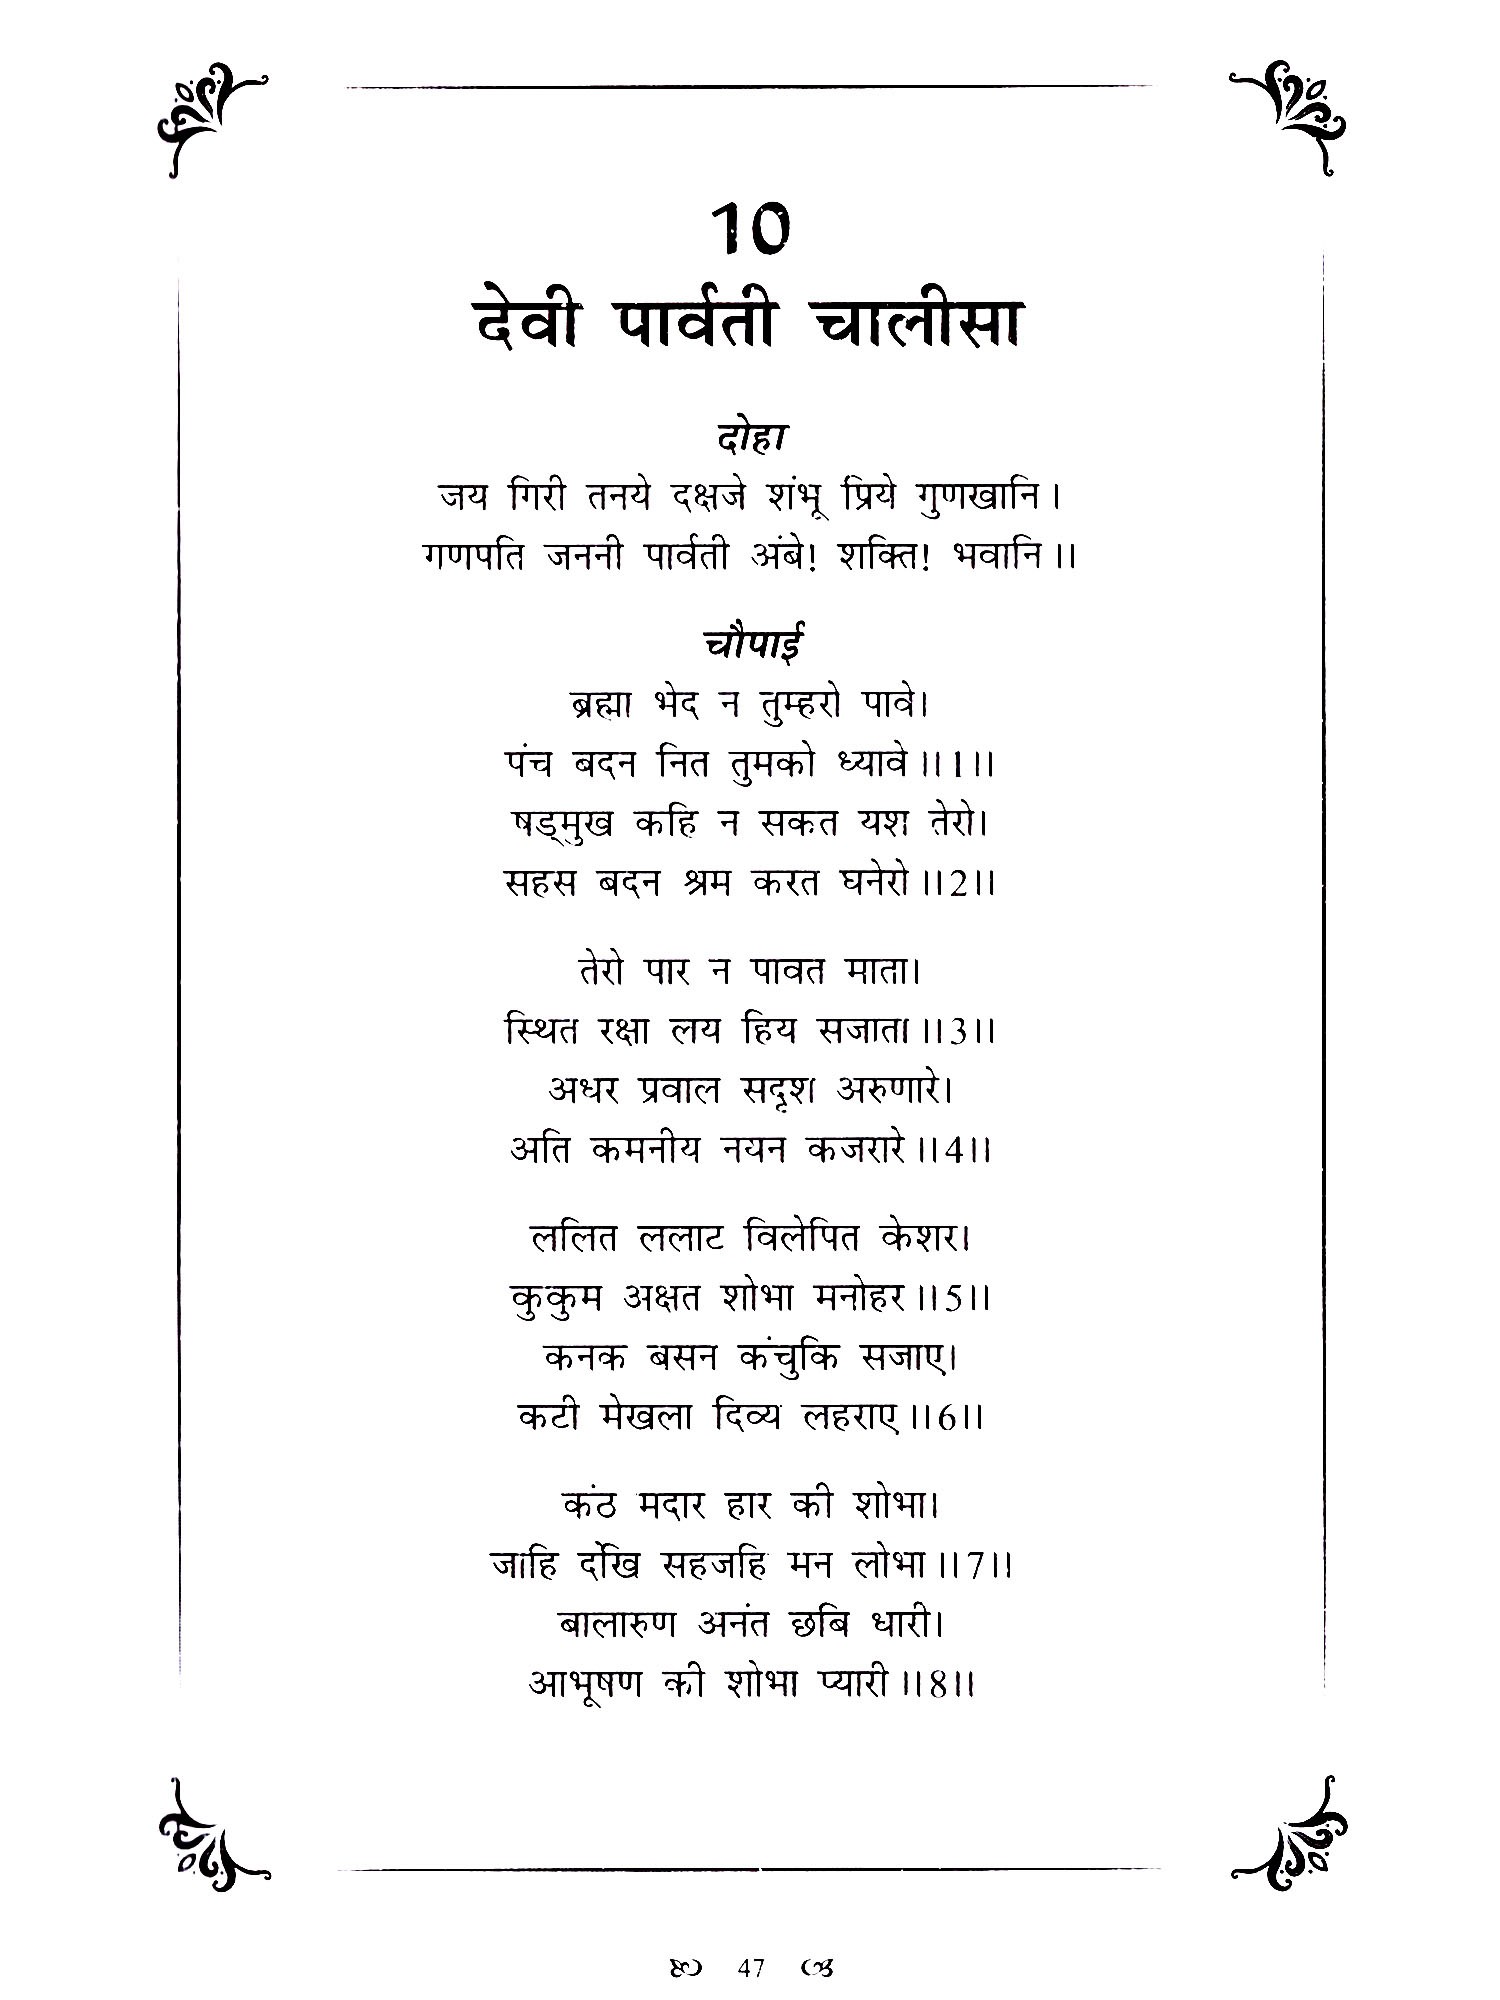 10
देवी पार्वती चालीसा
दोहा
जय गिरी तनये दक्षजे शंभू प्रिये गुणखानि।
गणपति जननी पार्वती अंबे! शक्ति! भवानि।।
चौपाई
ब्रह्मा भेद न तुम्हरो पावे।
पंच बदन नित तुमको ध्यावे।।1।।
षड्मुख कहि न सकत यश तेरो।
सहस बदन श्रम करत घनेरो।।2।।
तेरो पार न पावत माता।
स्थित रक्षा लय हिय सजाता।।3।।
अधर प्रवाल सदृश अरुणारे।
अति कमनीय नयन कजरारे।।4।।
ललित ललाट विलेपित केशर।
कुकुम अक्षत शोभा मनोहर।।5।।
कनक बसन कंचुकि सजाए।
कटी मेखला दिव्य लहराए।।6।।
कंठ मदार हार की शोभा।
जाहि देखि सहजहि मन लोभा।।7।।
बालारुण अनंत छबि धारी।
आभूषण की शोभा प्यारी।।8।।
47